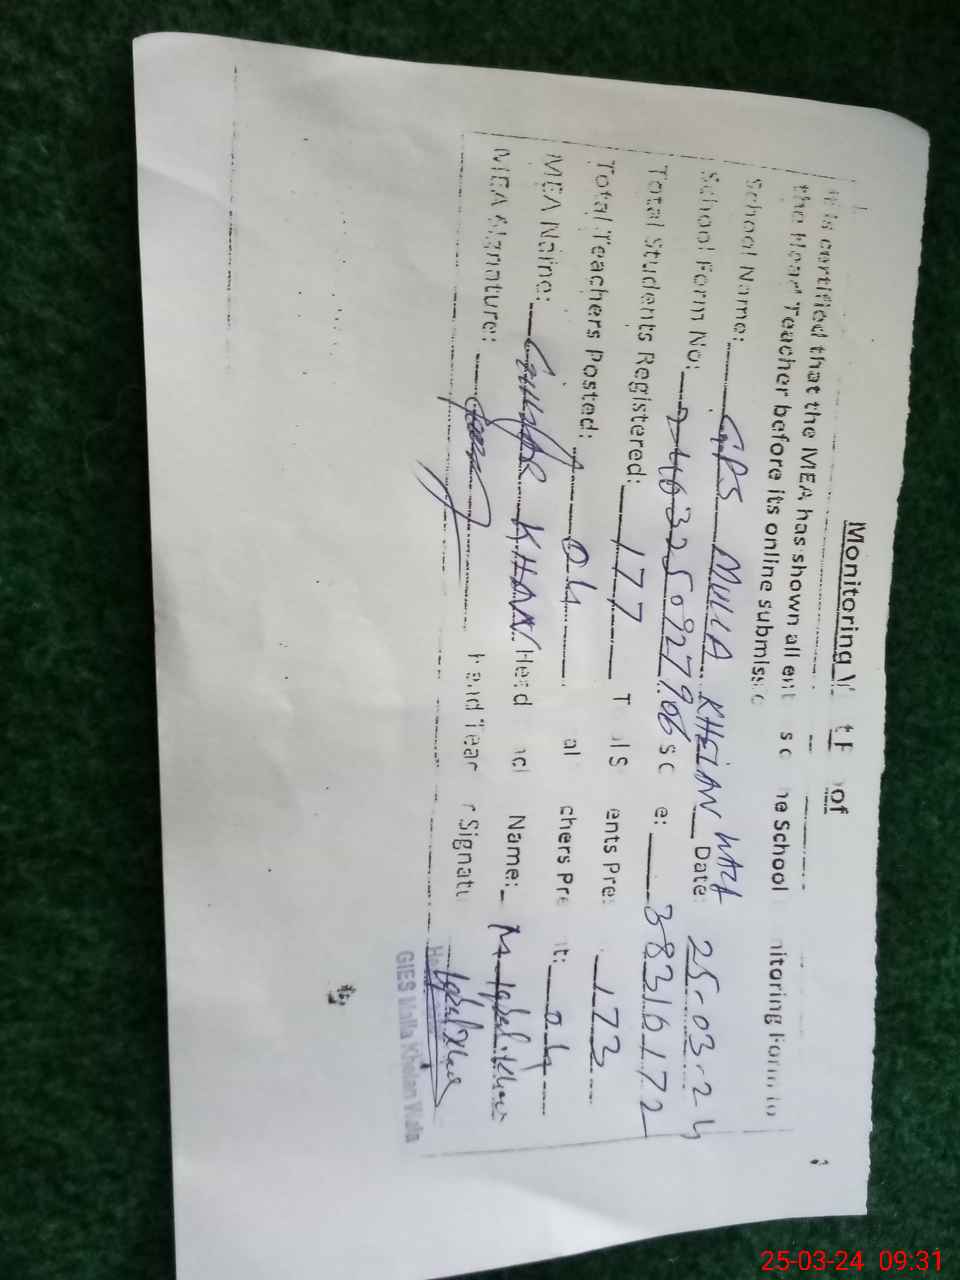 Monitoring V t P of
It is certified that the MEA has shown all ent s c he School nitoring Form to
the Head Teacher before its online submiss
School Name: GPS MULLA KHELAN WALA Date: 25-03-24
School Form No: 2463250927906 sc e: 38316172
Total Students Registered: 177 T l S ents Pre 173
Total Teachers Posted: 04 al chers Pre t: 04
MEA Name: GULZAR KHAN Head cl Name: M Iqbal Khan
MEA Signature: Head Tear r Signatu Iqbal Khan
GIES Malla Khelan Wala
25-03-24 09:31